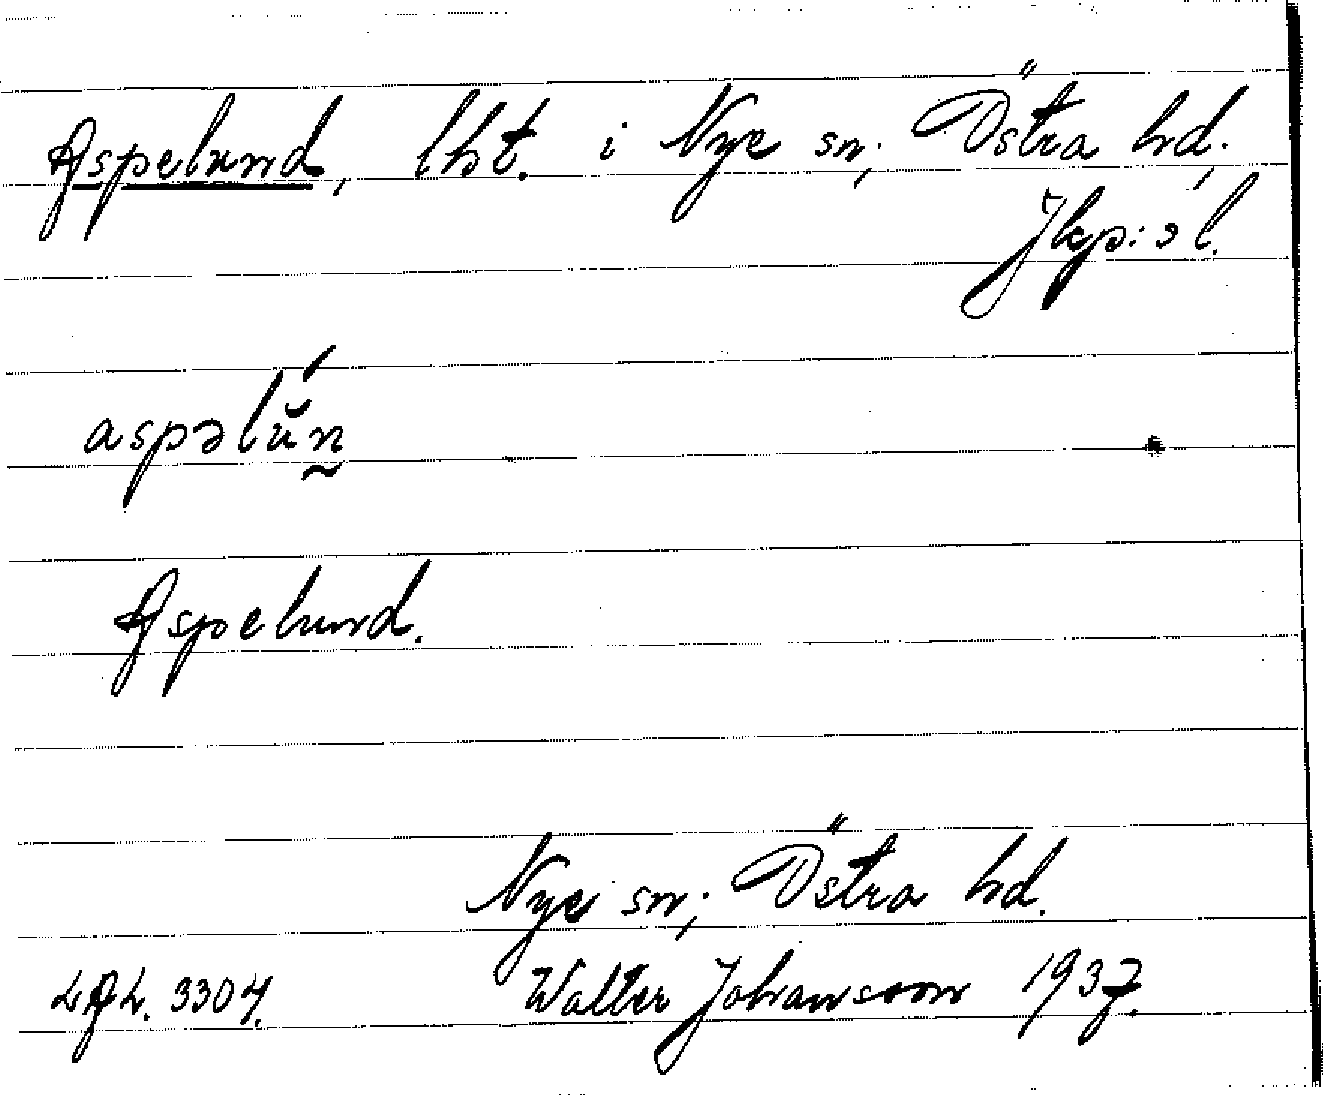 Aspelund, lht. i Nye sn; Östra hd,
Jkp:s l.
aspəlŭ́n̰
Aspelund.
Nye sn; Östra hd.
LAL. 3304. Walter Johansson 1937.